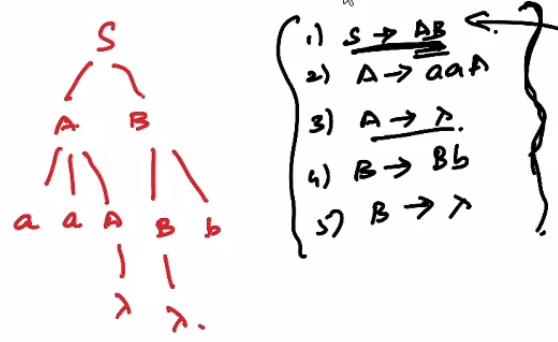 S
A B
a a A B b
λ λ.
1) S → AB
2) A → aaA
3) A → λ.
4) B → Bb
5) B → λ